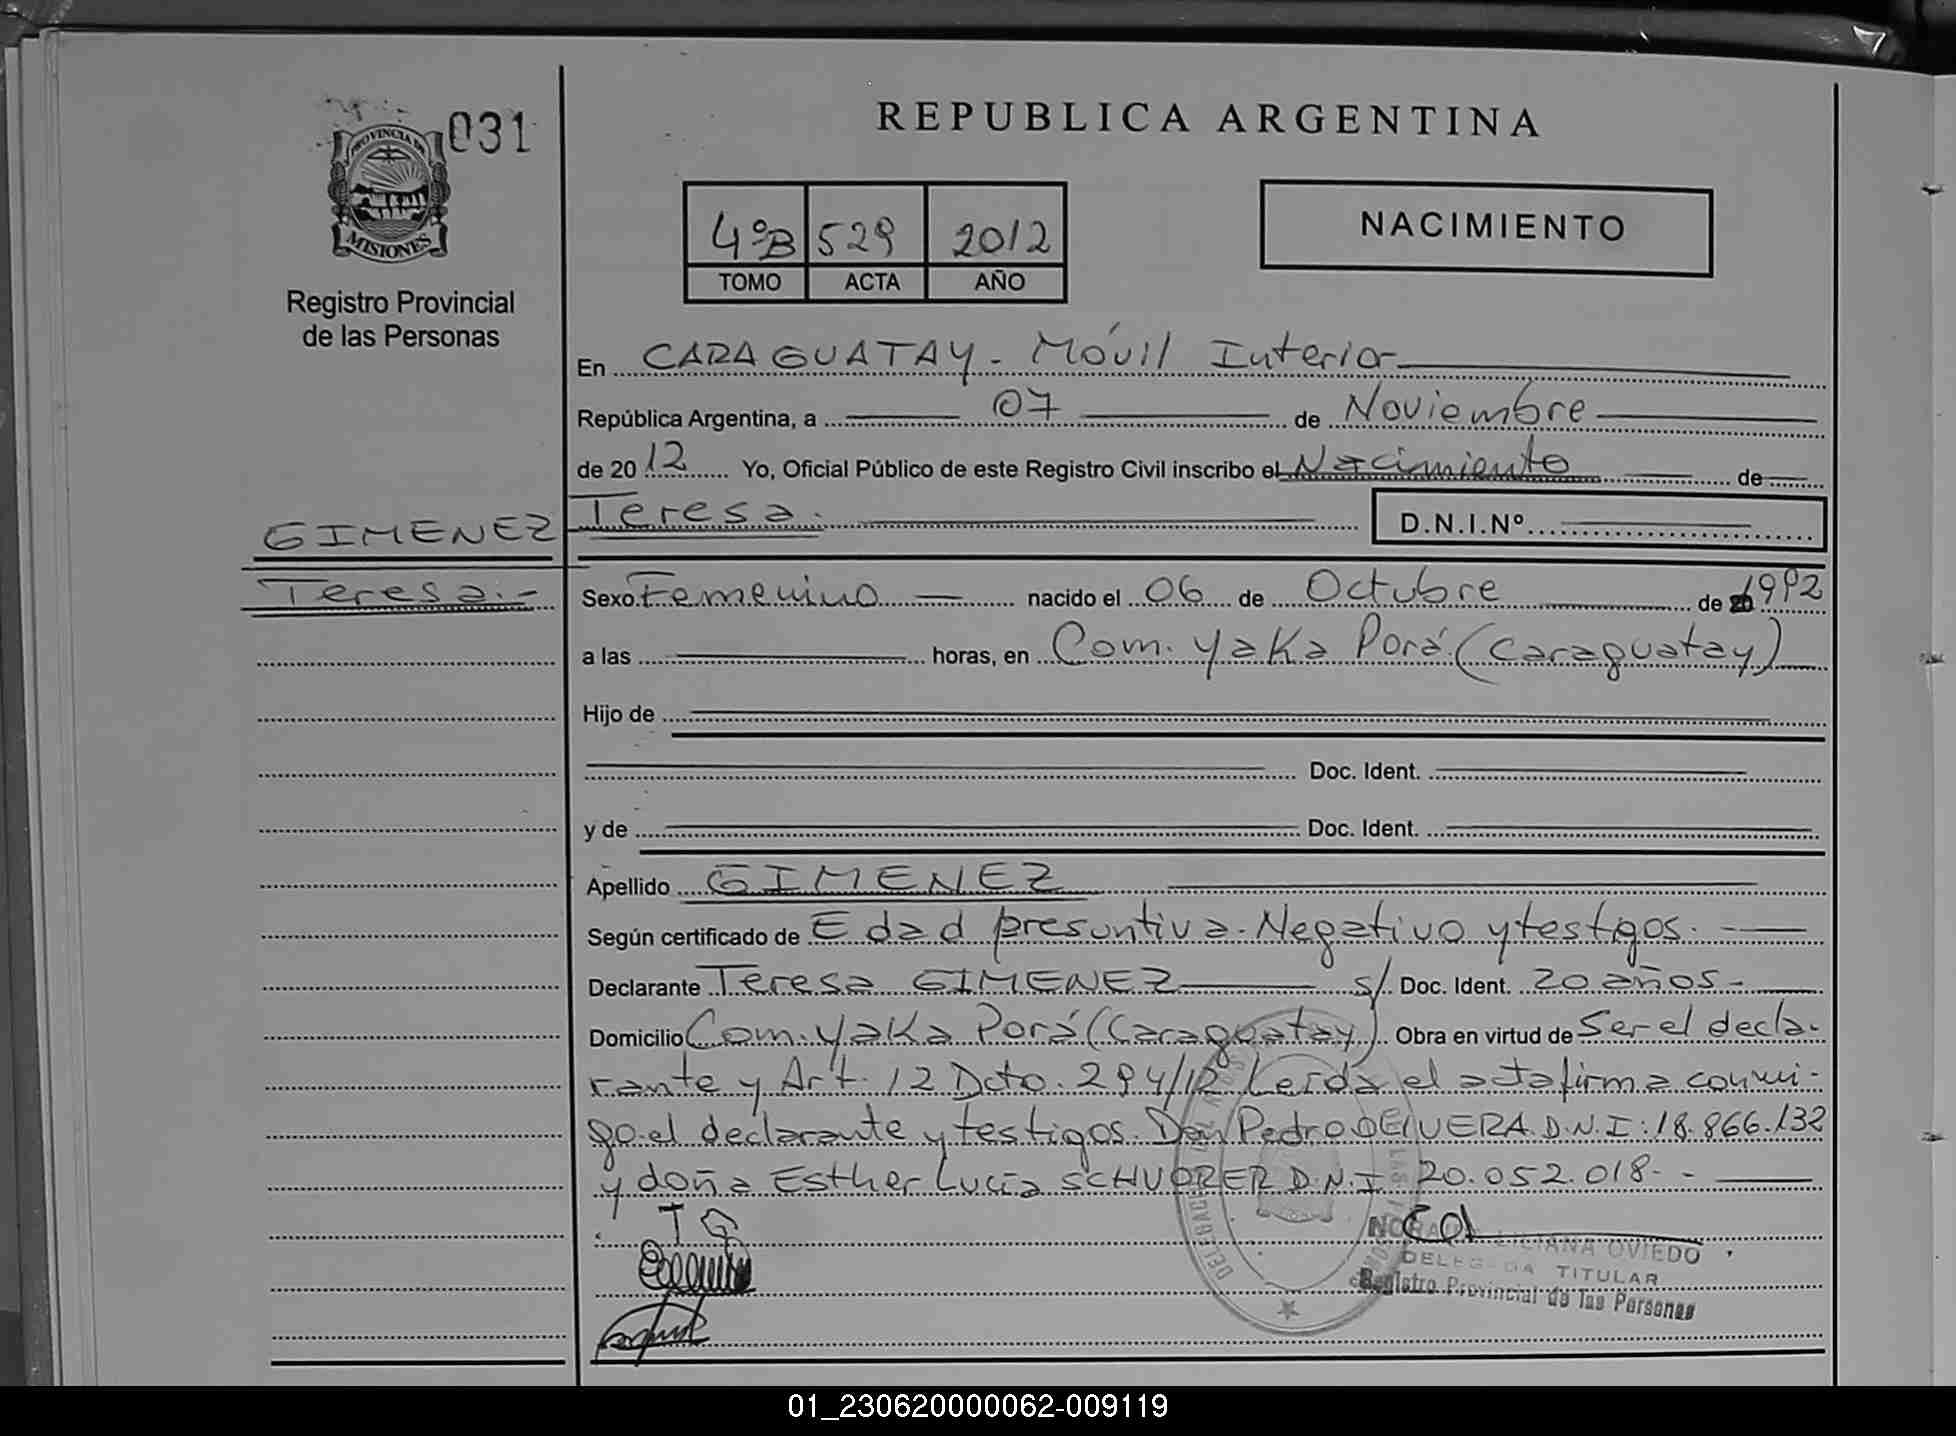 031
PROVINCIA DE
MISIONES
Registro Provincial
de las Personas
REPUBLICA ARGENTINA
4ºB 529 2012
TOMO ACTA AÑO
NACIMIENTO
En CARAGUATAY - Móvil Interior
República Argentina, a 07 de Noviembre
de 2012 Yo, Oficial Público de este Registro Civil inscribo el Nacimiento de
Teresa. D.N.I.Nº
GIMENEZ
Teresa.-
Sexo Femenino nacido el 06 de Octubre de 1992
a las horas, en Com. Yaka Porá (Caraguatay)
Hijo de
Doc. Ident.
y de Doc. Ident.
Apellido GIMENEZ
Según certificado de Edad presuntiva. Negativo y testigos.
Declarante Teresa GIMENEZ s/ Doc. Ident. 20 años -
Domicilio Com. Yaka Porá (Caraguatay) Obra en virtud de Ser el decla-
rante y Art. 12 Dcto. 294/12 Leída el acta firma conmi-
go el declarante y testigos. Don Pedro OLIVERA D.N.I: 18.866.132
y doña Esther Lucía SCHUORER D.N.I 20.052.018- -
T G
LILIANA OVIEDO
DELEGADA TITULAR
Registro Provincial de las Personas
01_230620000062-009119